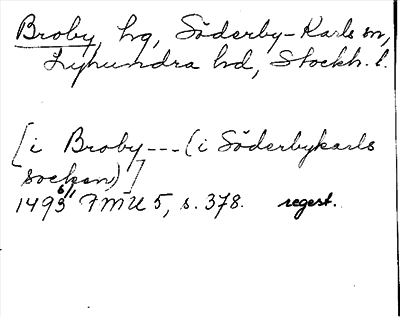 Broby, hg, Söderby-Karls sn,
Lyhundra hd, Stockh. l.
[i Broby --- (i Söderbykarls
socken)]
1493 6/11 FMU 5, s. 378. regest.